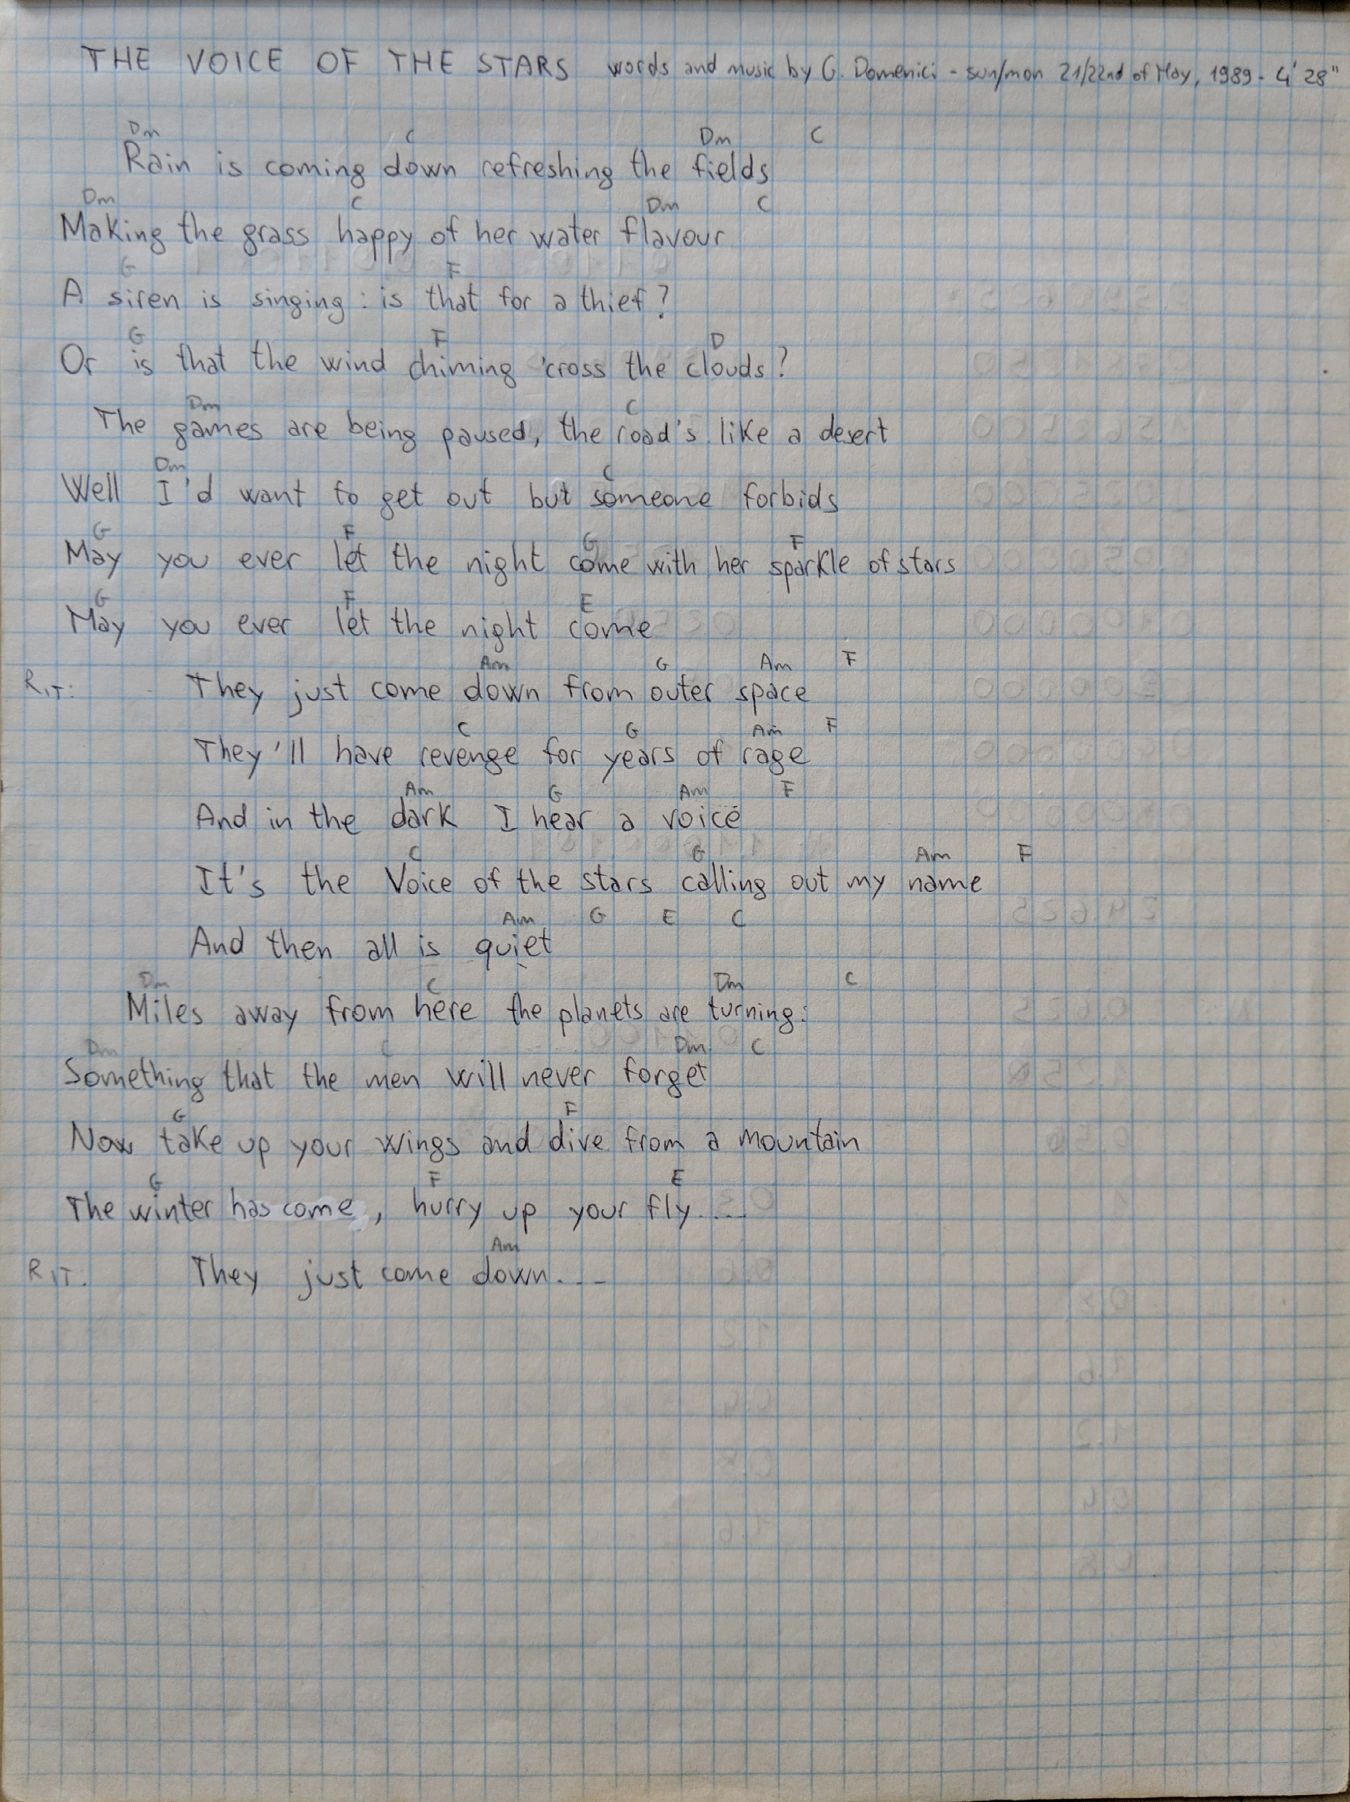 THE VOICE OF THE STARS words and music by G. Domenici - sun/mon 21/22nd of May, 1989 - 4' 28"
Dm C Dm C
Rain is coming down refreshing the fields
Dm C Dm C
Making the grass happy of her water flavour
G F
A siren is singing: is that for a thief?
G F D
Or is that the wind chiming 'cross the clouds?
Dm C
The games are being paused, the road's like a desert
Dm C
Well I'd want to get out but someone forbids
G F G F
May you ever let the night come with her sparkle of stars
G F E
May you ever let the night come
Am G Am F
RIT: They just come down from outer space
C G Am F
They'll have revenge for years of rage
Am G Am F
And in the dark I hear a voice
C G Am F
It's the Voice of the stars calling out my name
Am G E C
And then all is quiet
Dm C Dm C
Miles away from here the planets are turning:
Dm C Dm C
Something that the men will never forget
G F
Now take up your wings and dive from a mountain
G F E
The winter has come, hurry up your fly....
Am
RIT. They just come down....